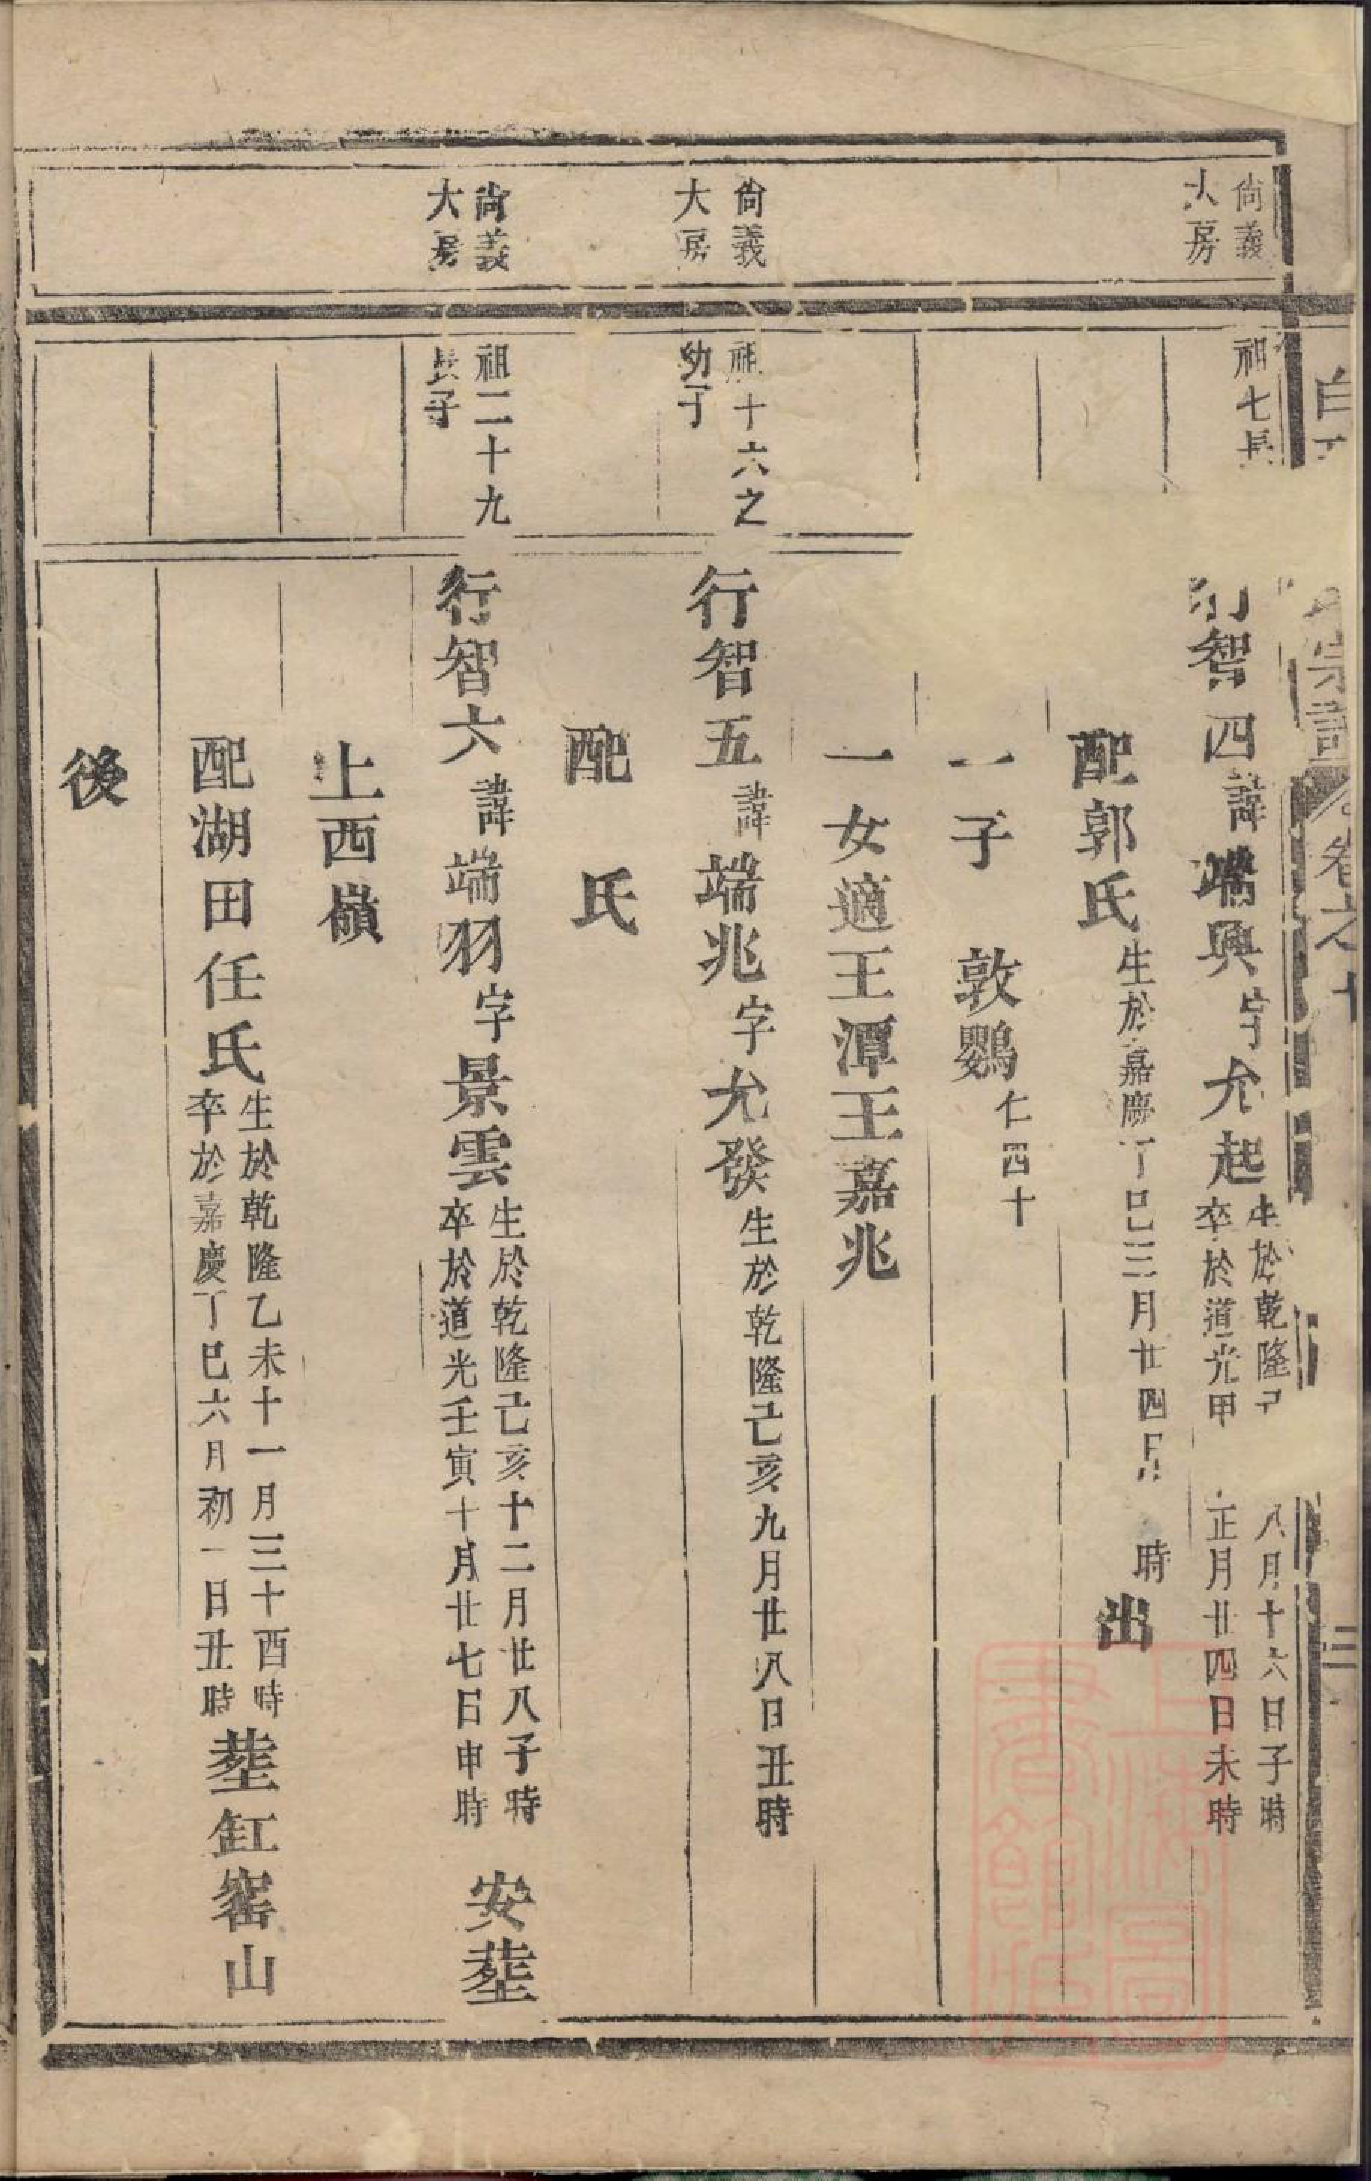 尙義
大房
祖七長
行智四諱端興字允起
生於乾隆己
八月十六日子時
卒於道光甲
正月廿四日未時
配郭氏生於嘉慶丁巳三月廿四日
時出
一子 敦鸚仁四十
一女適王潭王嘉兆
尙義
大房
祖十六之
幼子
行智五諱端兆字允發生於乾隆己亥九月廿八日丑時
配 氏
尙義
大房
祖二十九
長子
行智六諱端羽字景雲
生於乾隆己亥十二月廿八子時
卒於道光壬寅十月廿七日申時
安塟
上西嶺
配湖田任氏
生於乾隆乙未十一月三十酉時
卒於嘉慶丁巳六月初一日丑時
塟缸窑山
後
宗譜
卷之十
二
上海圖書館藏